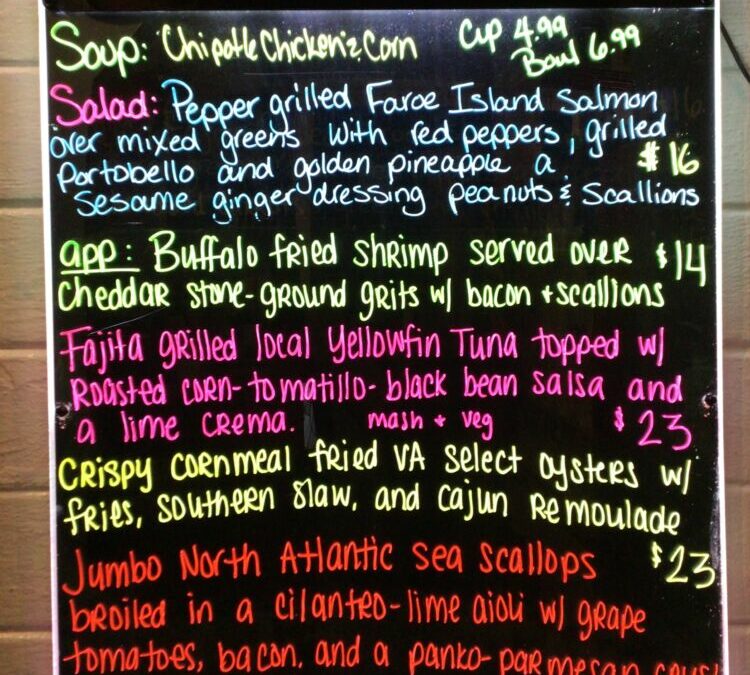 Soup: Chipotle Chicken & Corn Cup 4.99
Bowl 6.99
Salad: Pepper grilled Faroe Island Salmon
over mixed greens with red peppers, grilled
Portobello and golden pineapple a $16
Sesame ginger dressing peanuts & Scallions
app: Buffalo fried shrimp served over $14
Cheddar stone-ground grits w/ bacon + scallions
Fajita grilled local Yellowfin Tuna topped w/
Roasted corn-tomatillo-black bean salsa and
a lime crema. mash + veg $23
Crispy cornmeal fried VA select oysters w/
fries, southern slaw, and cajun Remoulade
Jumbo North Atlantic sea scallops $23
broiled in a cilantro-lime aioli w/ grape
tomatoes, bacon, and a panko-parmesan